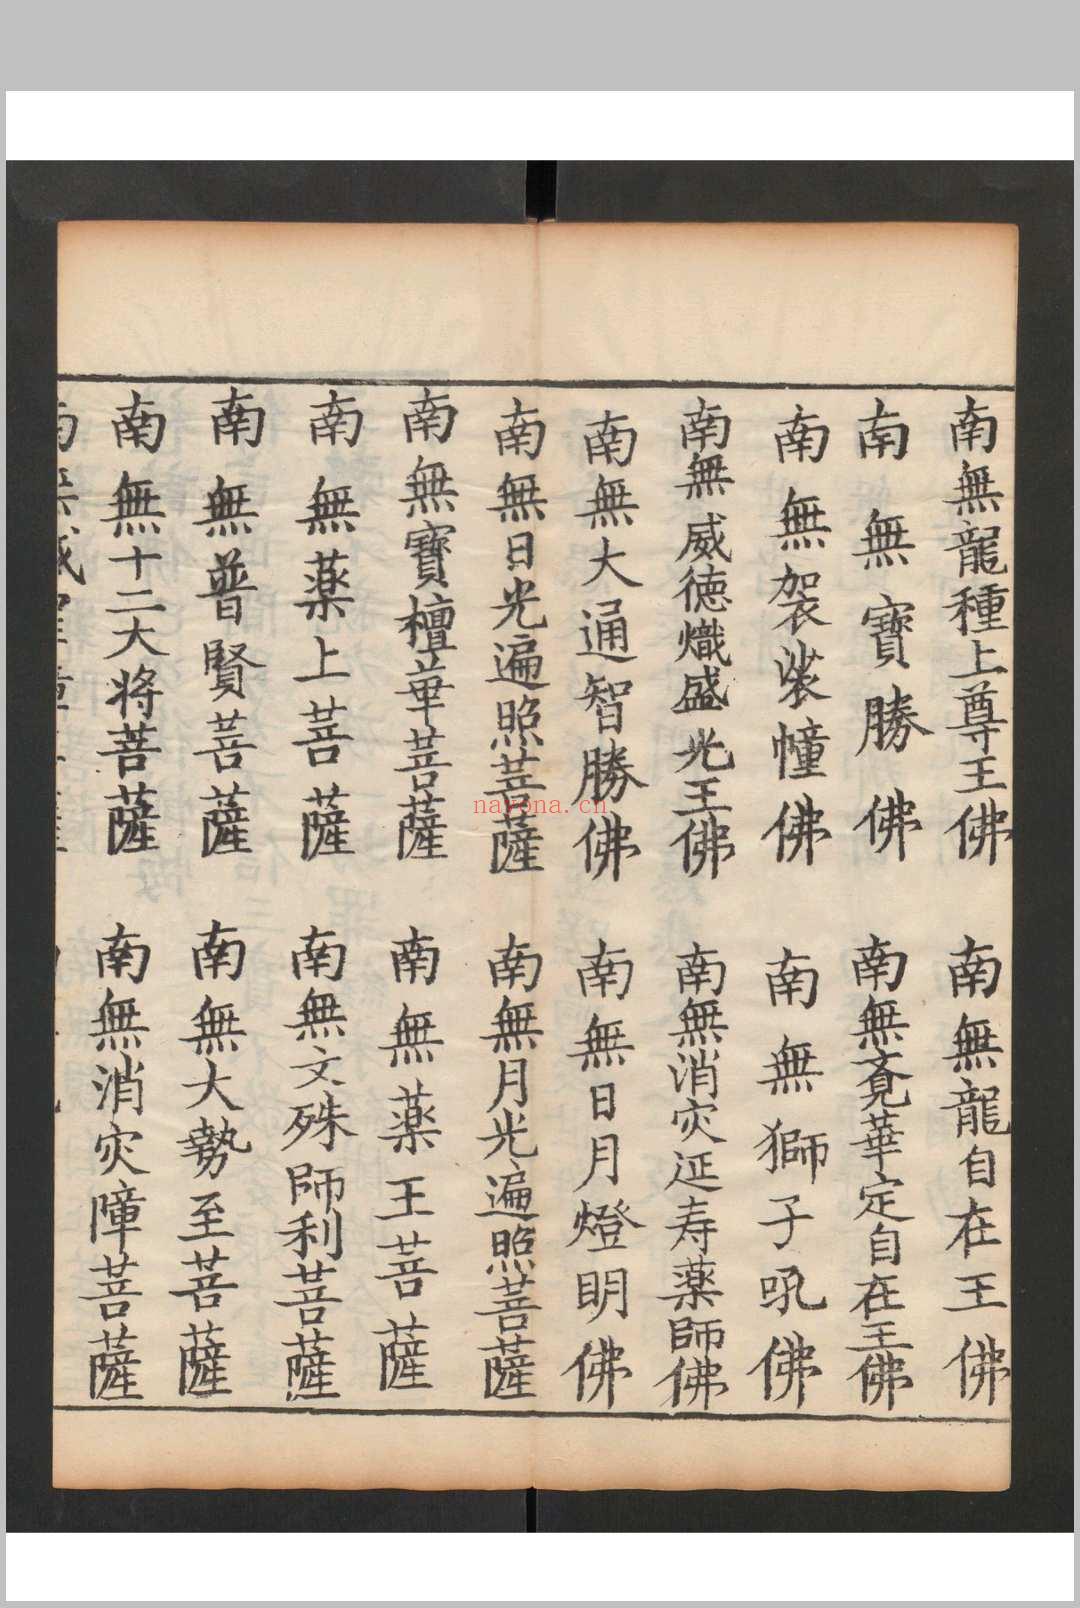 南無龍種上尊王佛
南無龍自在王佛
南無寶勝佛
南無覔華定自在王佛
南無袈裟幢佛
南無獅子吼佛
南無威德熾盛光王佛
南無消灾延寿薬師佛
南無大通智勝佛
南無日月燈明佛
南無日光遍照菩薩
南無月光遍照菩薩
南無寶檀華菩薩
南無薬王菩薩
南無薬上菩薩
南無文殊師利菩薩
南無普賢菩薩
南無大勢至菩薩
南無十二大将菩薩
南無消灾障菩薩
nayona.cn